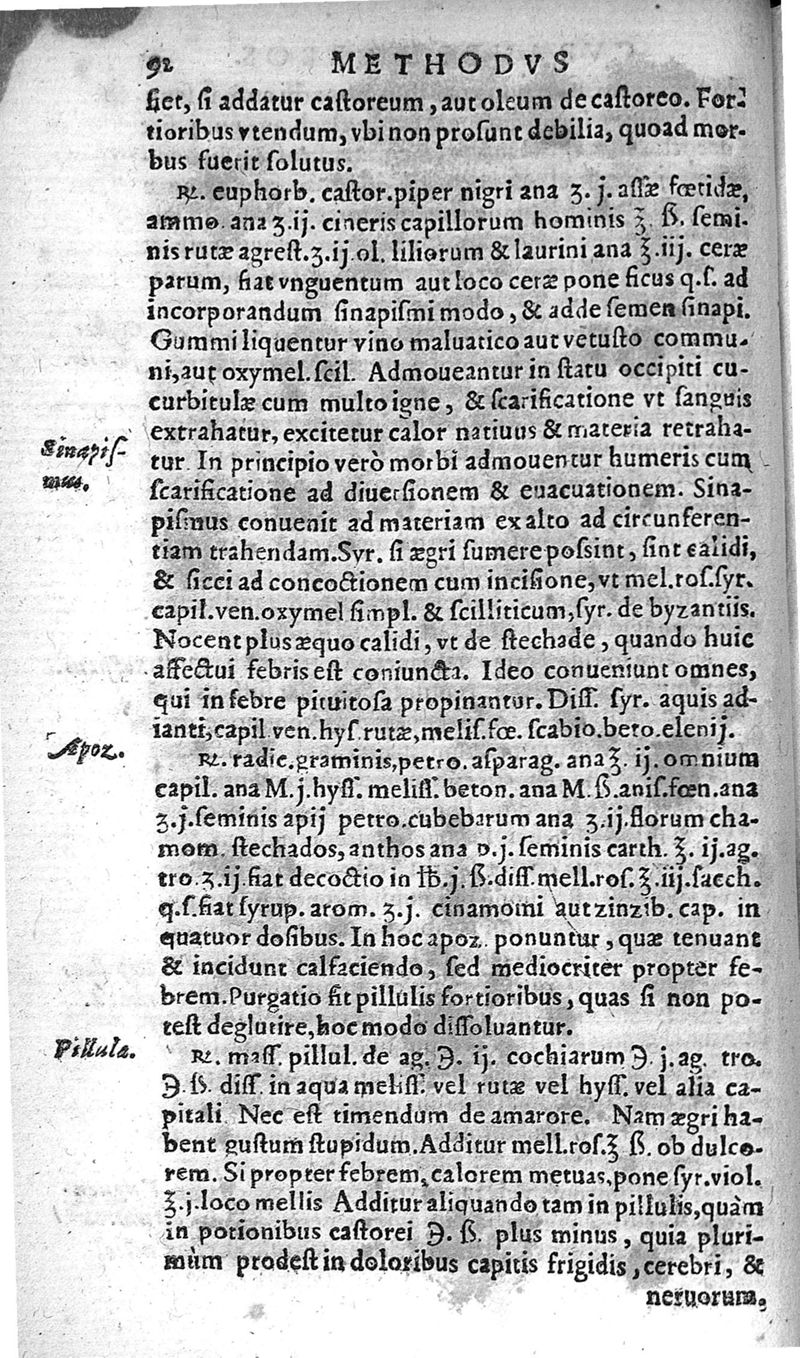 92 METHODVS
fiet, ſi addatur caſtoreum, aut oleum de caſtoreo. For-
tioribus vtendum, vbi non proſunt debilia, quoad mor-
bus fuerit ſolutus.
℞. euphorb. caſtor. piper nigri ana ʒ. j. aſſæ fœtidæ,
ammo. ana ʒ. ij. cineris capillorum hominis ℥. ß. ſemi-
nis rutæ agreſt. ʒ. ij. ol. liliorum & laurini ana ℥. iij. ceræ
parum, fiat vnguentum aut loco ceræ pone ficus q. ſ. ad
incorporandum ſinapiſmi modo, & adde ſemen ſinapi.
Gummi liquentur vino maluatico aut vetuſto commu-
ni, aut oxymel. ſcil. Admoueantur in ſtatu occipiti cu-
curbitulæ cum multo igne, & ſcarificatione vt ſanguis
extrahatur, excitetur calor natiuus & materia retraha-
Sinapiſ-
mus.
tur. In principio verò morbi admouentur humeris cum
ſcarificatione ad diuerſionem & euacuationem. Sina-
piſmus conuenit ad materiam ex alto ad circunferen-
tiam trahendam. Syr. ſi ægri ſumere poſsint, ſint calidi,
& ſicci ad concoctionem cum inciſione, vt mel. roſ. ſyr.
capil. ven. oxymel ſimpl. & ſcilliticum, ſyr. de byzantiis.
Nocent plus æquo calidi, vt de ſtechade, quando huic
affectui febris eſt coniuncta. Ideo conueniunt omnes,
qui in febre pituitoſa propinantur. Diſſ. ſyr. aquis ad-
ianti, capil. ven. hyſ. rutæ, meliſ. fœ. ſcabio. beto. elenij.
Apoz.
℞. radic. graminis, petro. aſparag. ana ℥. ij. omnium
capil. ana M. j. hyſſ. meliſſ. beton. ana M. ß. aniſ. fœn. ana
ʒ. j. ſeminis apij petro. cubebarum ana ʒ. ij. florum cha-
mom. ſtechados, anthos ana ℈. j. ſeminis carth. ℥. ij. ag.
tro. ʒ. ij. fiat decoctio in ℔. j. ß. diſſ. mell. roſ. ℥. iij. ſacch.
q. ſ. fiat ſyrup. arom. ʒ. j. cinamomi aut zinzib. cap. in
quatuor doſibus. In hoc apoz. ponuntur, quæ tenuant
& incidunt calfaciendo, ſed mediocriter propter fe-
brem. Purgatio fit pillulis fortioribus, quas ſi non po-
teſt deglutire, hoc modo diſſoluantur.
Pillulæ.
℞. maſſ. pillul. de ag. ℈. ij. cochiarum ℈. j. ag. tro.
℈. ß. diſſ. in aqua meliſſ. vel rutæ vel hyſſ. vel alia ca-
pitali. Nec eſt timendum de amarore. Nam ægri ha-
bent guſtum ſtupidum. Additur mell. roſ. ℥ ß. ob dulco-
rem. Si propter febrem, calorem metuas, pone ſyr. viol.
℥. j. loco mellis Additur aliquando tam in pillulis, quàm
in potionibus caſtorei ℈. ß. plus minus, quia pluri-
mùm prodeſt in doloribus capitis frigidis, cerebri, &
neruorum.